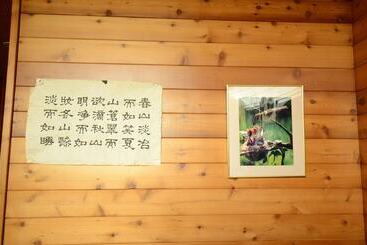 春山淡冶
而如笑夏
山蒼翠而
欲滴秋山
明淨而如
妝冬山慘
淡而如睡